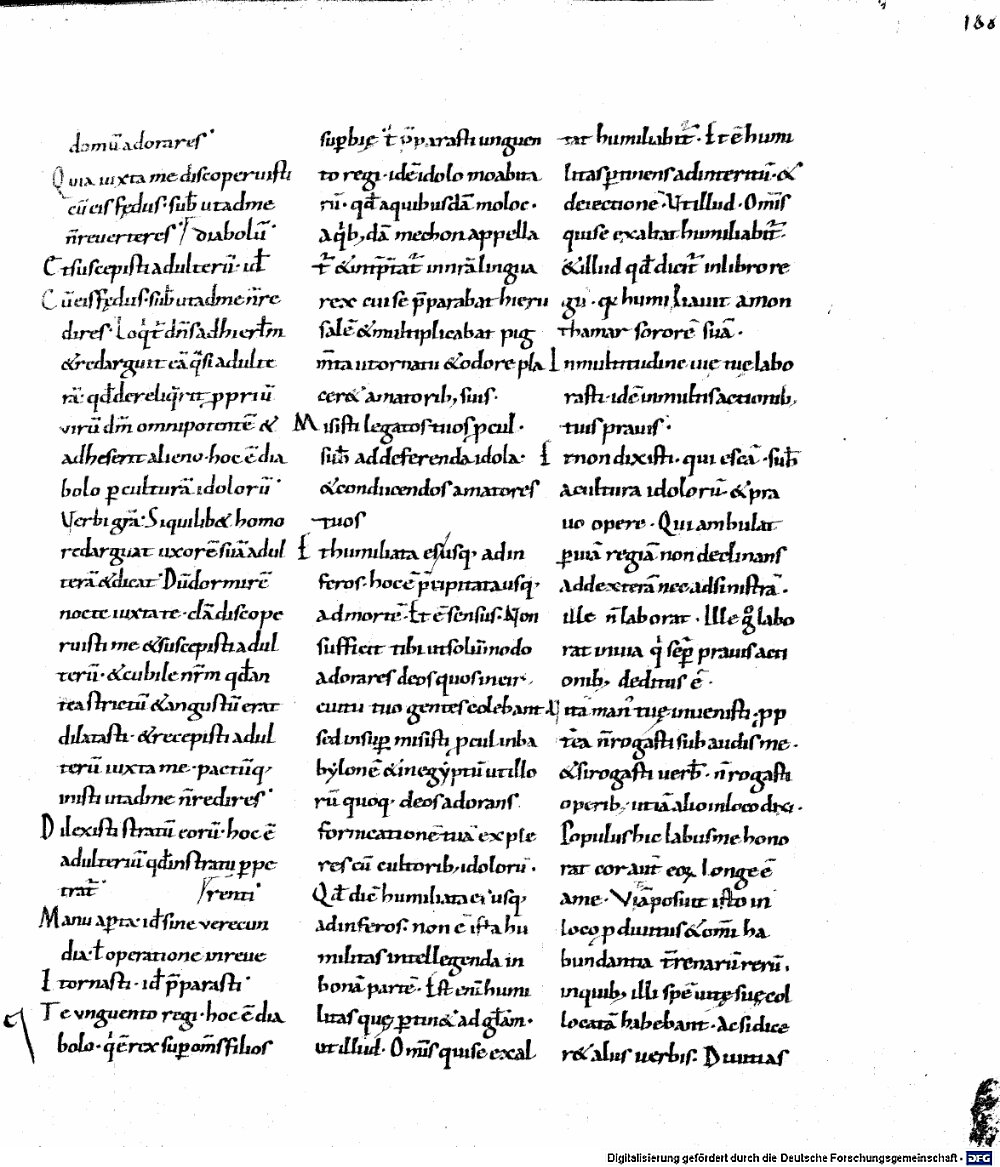 188
domū adorares·
Quia iuxta me discoperuisti
cū eis fędus· sub̄ ut ad me
n̄ reuerteres diabolū·
Et suscepisti adulterū· id ē
Cū eis fędus· sub̄ ut ad me n̄ re
dires· Loq̄t̄ dn̄s ad hierl̄m
& redarguit eā q̄si adulte
rā· qd̄ dereliq̄rit ꝓpriū
virū dm̄ omnipotentē &
adheserit alieno· hoc ē dia
bolo ꝑ culturā idolorū·
Verbi gr̄a· Si quilib& homo
redarguat uxorē suā adul
terā & dicat· Dū dormirē
nocte iuxta te· clā discope
ruisti me & suscepisti adul
terū· & cubile nr̄m qd̄ an
tea strictū & angustū erat
dilatasti· & recepisti adul
terū iuxta me· pactūq;
inisti ut ad me n̄ redires·
Dilexisti stratū eorū· hoc ē
adulteriū qd̄ in stratu ꝑpe
trat̄· renti·
Manu aꝑta· id ē sine verecun
dia· ł operatione in reue
Et ornasti· id ē p̄parasti·
Te vnguento regi· hoc ē dia
bolo· q̄ ē rex suꝑ om̄s filios
suꝑbię ł p̄parasti unguen
to regi· idē idolo moabita
rū· qd̄ a quibusdā moloc·
A q̄b; dā mechon appella
t̄ & int̄p̄tat̄ in nr̄a lingua
rex cui se p̄parabat hieru
salē & multiplicabat pig
m̄ta ut ornatu & odore pla
cer& amatorib; suis·
Misisti legatos tuos ꝓcul·
sub̄ ad deferenda idola·
& conducendos amatores
tuos
Et humiliata es usq; ad in
feros· hoc ē p̄cipitata usq;
ad mortē· Et ē sensus· Non
sufficit tibi ut solūmodo
adorares deos quos in cir
cuitu tuo gentes colebant
sed insuꝑ misisti ꝓcul in ba
bylonē & in egẏptū ut illo
rū quoq; deos adorans
fornicationē tuā exple
res cū cultorib; idolorū·
Qd̄ dic̄ humiliata es usq;
ad inferos· non ē ista hu
militas intellegenda in
bonā partē· Est eni humi
litas quę ꝑtin& ad gl̄am·
ut illud· Om̄is qui se exal
tat humiliabit̄· Et ē humi
litas ꝑtinens ad interitū· &
deiectionē· Vt illud· Om̄is
qui se exaltat humiliabit̄·
& illud qd̄ dicit̄ in libro re
gū· qꝫ humiliauit amon
thamar sororē suā·
In multitudine uię tuę labo
rasti· idē in multis actionib;
tuis prauis·
Et non dixisti· qui escā· sub̄
a cultura idolorū· & pra
uo opere· Qui ambulat
ꝑ uiā regiā non declinans
ad dexterā nec ad sinistrā·
ille n̄ laborat· Ille g̊ labo
rat in uia q̄ sēꝑ prauis acti
onib; deditus ē·
Vitā man᷒ tuę inuenisti· ꝓp
t̄ea n̄ rogasti subaudis me·
& si rogasti uerb̄· n̄ rogasti
operib; ut iā alio in loco dic̄·
Populus hic labiis me hono
rat cor aut̄ eoꝝ longe ē
a me· Viā posuit isto in
loco ꝓ diuitiis & om̄i ha
bundantia t̄renarū rerū·
in quib; illi spē uitę suę col
locatā habebant· Ac si dice
r& aliis uerbis· Diuitias
Digitalisierung gefördert durch die Deutsche Forschungsgemeinschaft - DFG